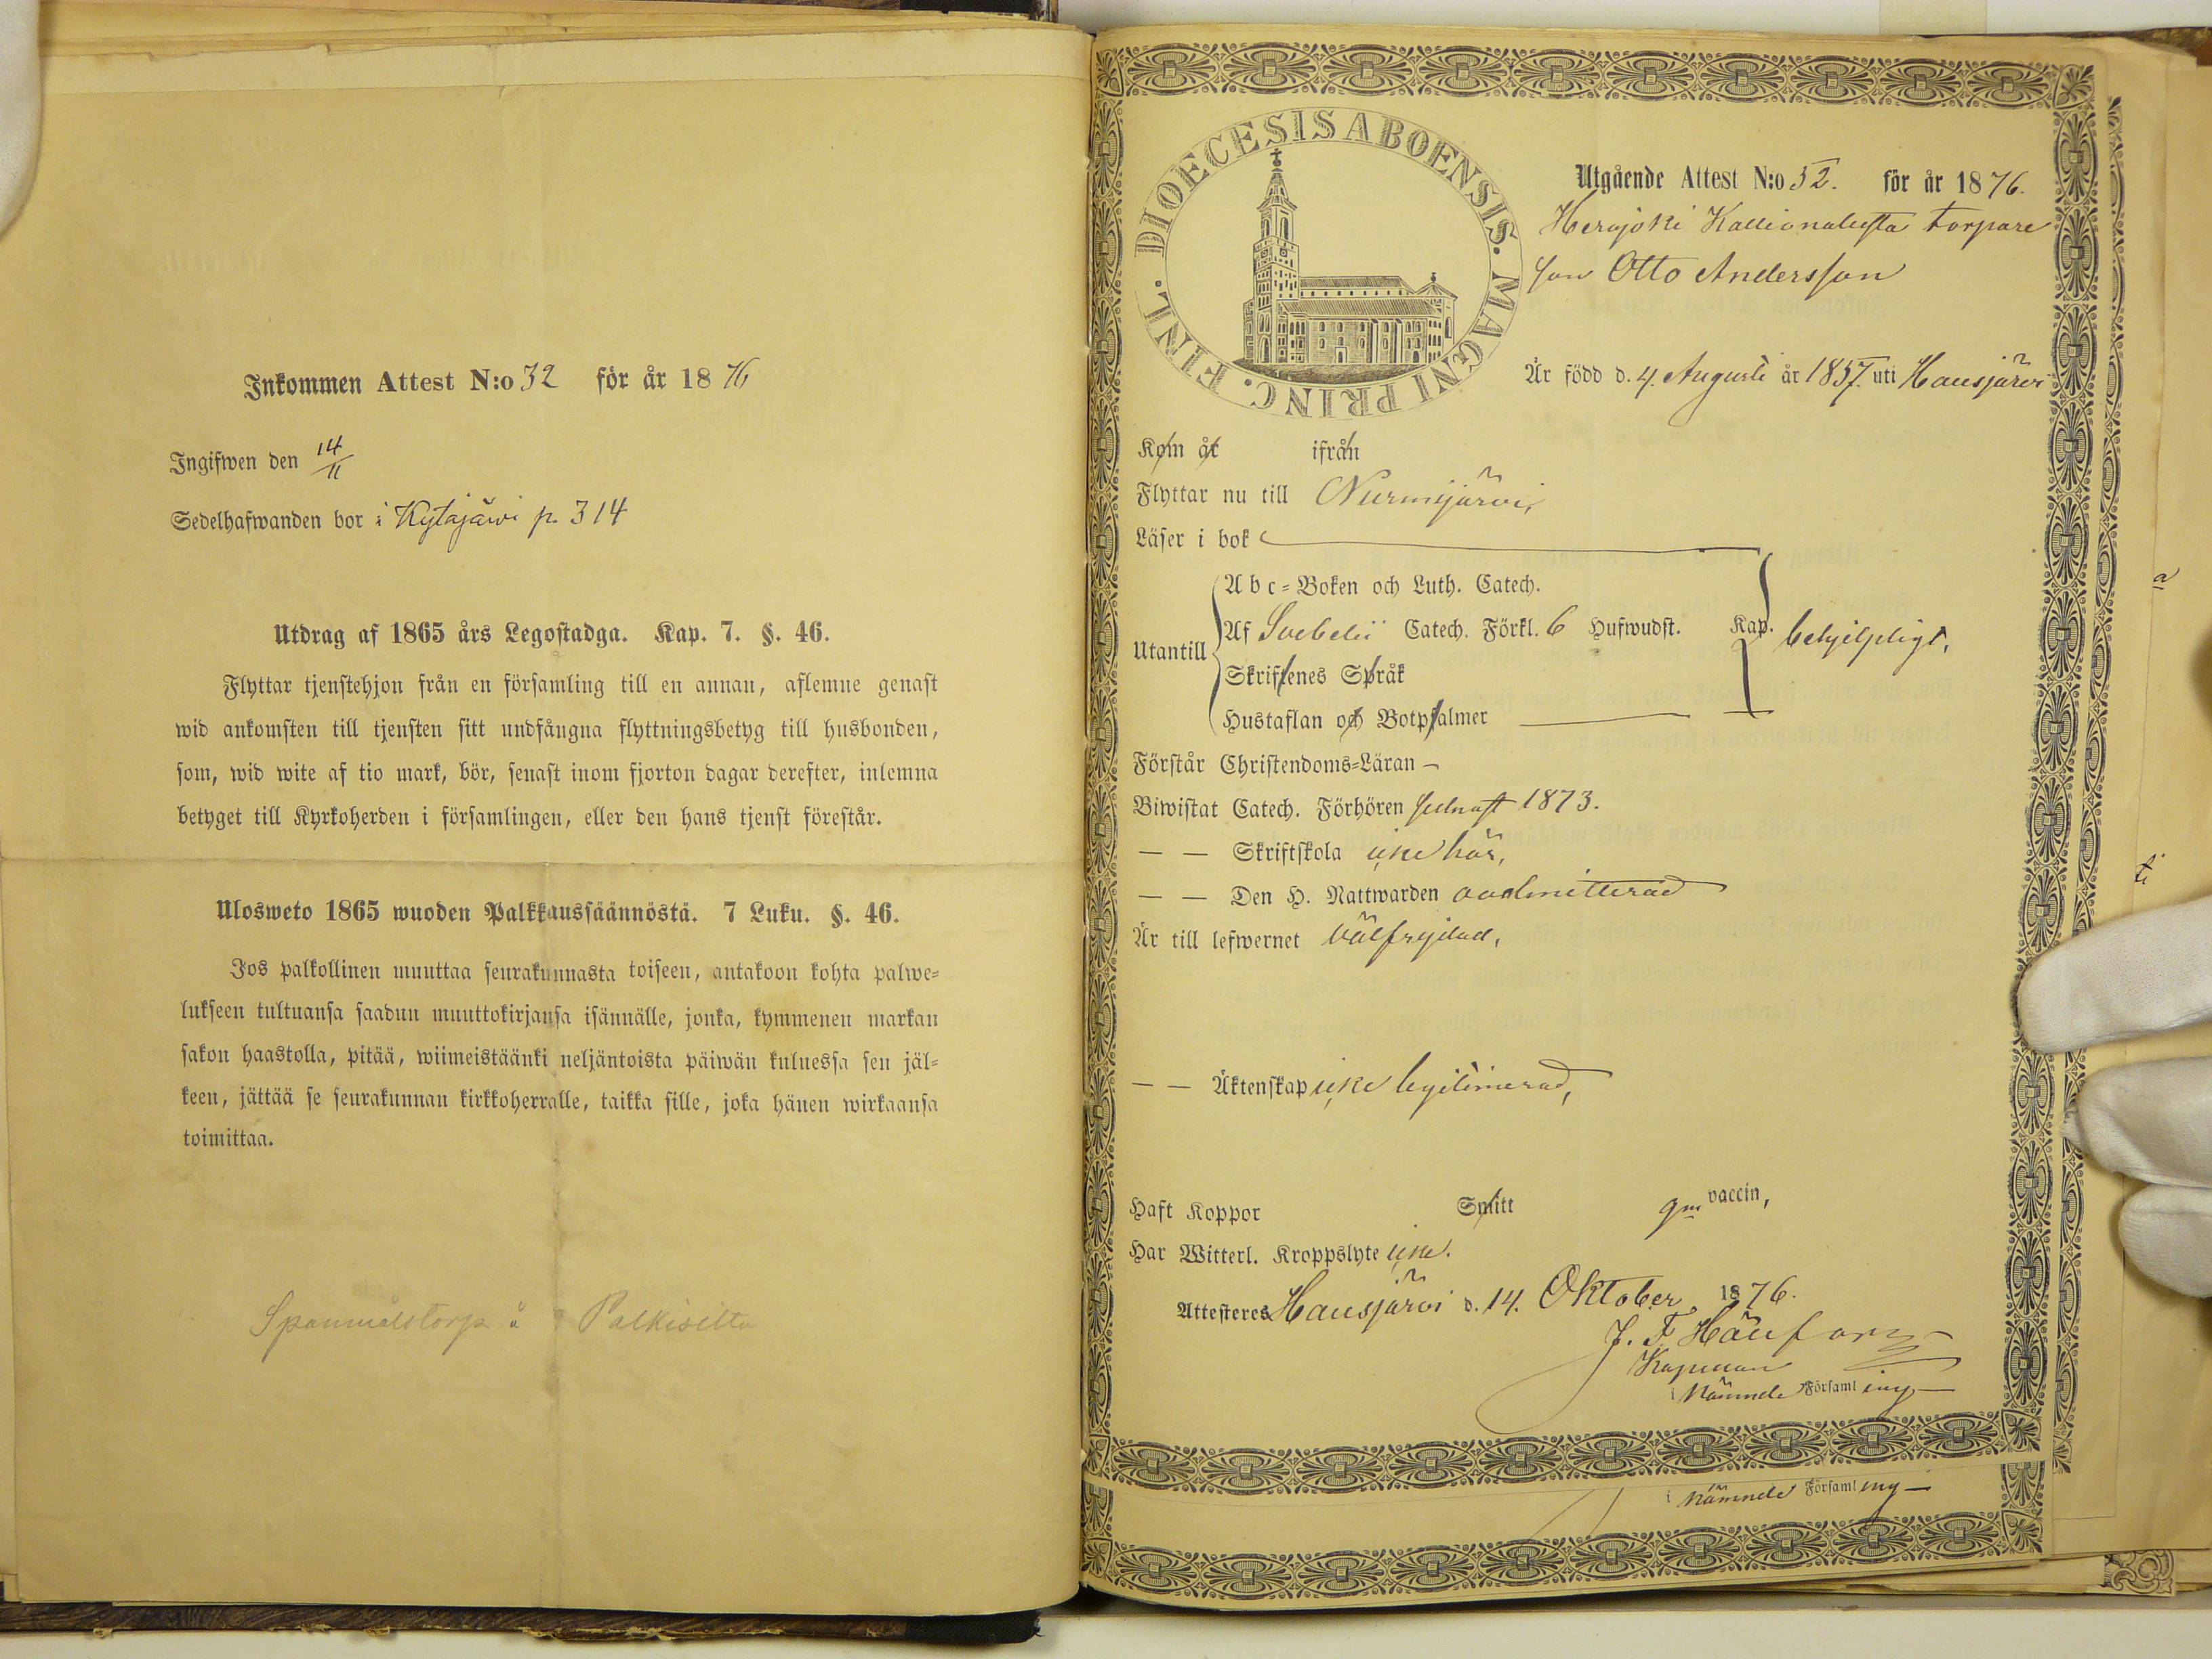 Inkommen Attest N:o 32 för år 1876
Ingifwen den 14/11
Sedelhafwanden bor i Kytäjäwi p. 314
Utdrag af 1865 års Legostadga. Kap. 7. §. 46.
Flyttar tjenstehjon från en församling till en annan, aflemne genast
wid ankomsten till tjensten sitt undfångna flyttningsbetyg till husbonden,
som, wid wite af tio mark, bör, senast inom fjorton dagar derefter, inlemna
betyget till Kyrkoherden i församlingen, eller den hans tjenst förestår.
Ulosweto 1865 wuoden Palkkaussäännöstä. 7 Luku. §. 46.
Jos palkollinen muuttaa seurakunnasta toiseen, antakoon kohta palwe=
lukseen tultuansa saadun muuttokirjansa isännälle, jonka, kymmenen markan
sakon haastolla, pitää, wiimeistäänki neljäntoista päiwän kuluessa sen jäl=
keen, jättää se seurakunnan kirkkoherralle, taikka sille, joka hänen wirkaansa
toimittaa.
Spannmålstorp å Palkisilta
DIOECESIS ABOENSIS. MAGNI PRINC. FINL.
Utgående Attest N:o 32. för år 1876.
Herajoki torpare
son Otto Andersson
Är född d. 4 Augusti år 1857 uti Hausjärvi
Kom år ifrån
Flyttar nu till Nurmijärvi,
Läser i bok
Abc=Boken och Luth. Catech.
Utantill
Af Svebelii Catech. Förkl. 6 Hufwudst. Kap. behjelpligt,
Skriftenes Språk
Hustaflan och Botpsalmer
Förstår Christendoms=Läran —
Biwistat Catech. Förhören sednast 1873.
— — Skriftskola icke här,
— — Den H. Nattwarden oadmitterad
Är till lefwernet välfrejdad,
— — Äktenskap icke legitimerad,
Haft Koppor Smitt gm vaccin,
Har Witterl. Kroppslyte icke.
Attesteres Hausjärvi d. 14. Oktober 1876.
J. F.
Kapellan
i Nämnde Församling
i Nämnde Församling